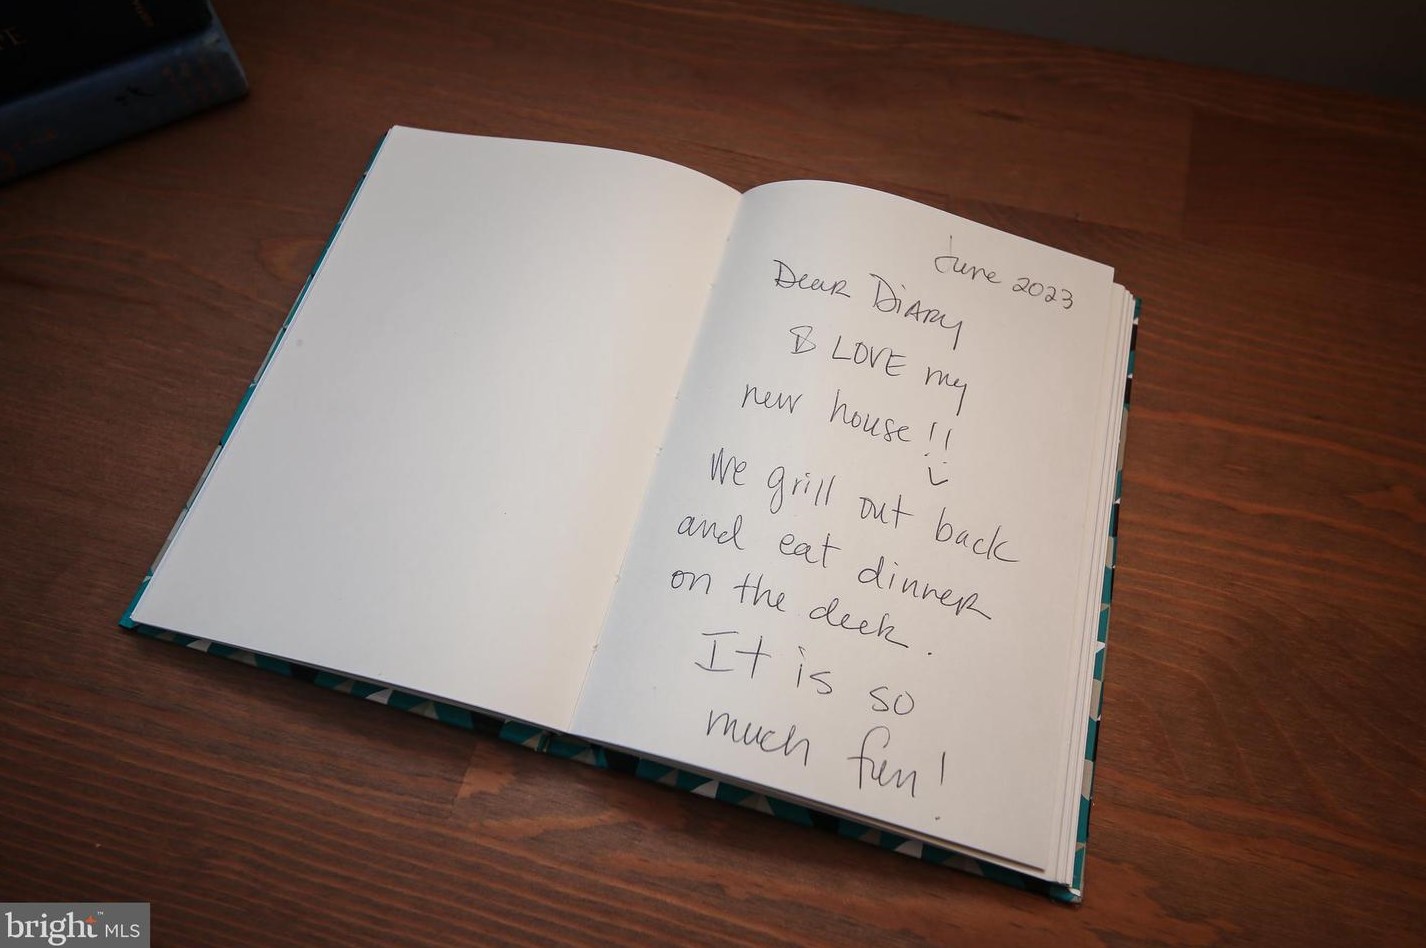 June 2023
Dear DiARy
I LOVE my
new house!!
We grill out back
and eat dinner
on the deck.
It is so
much fun!
bright MLS